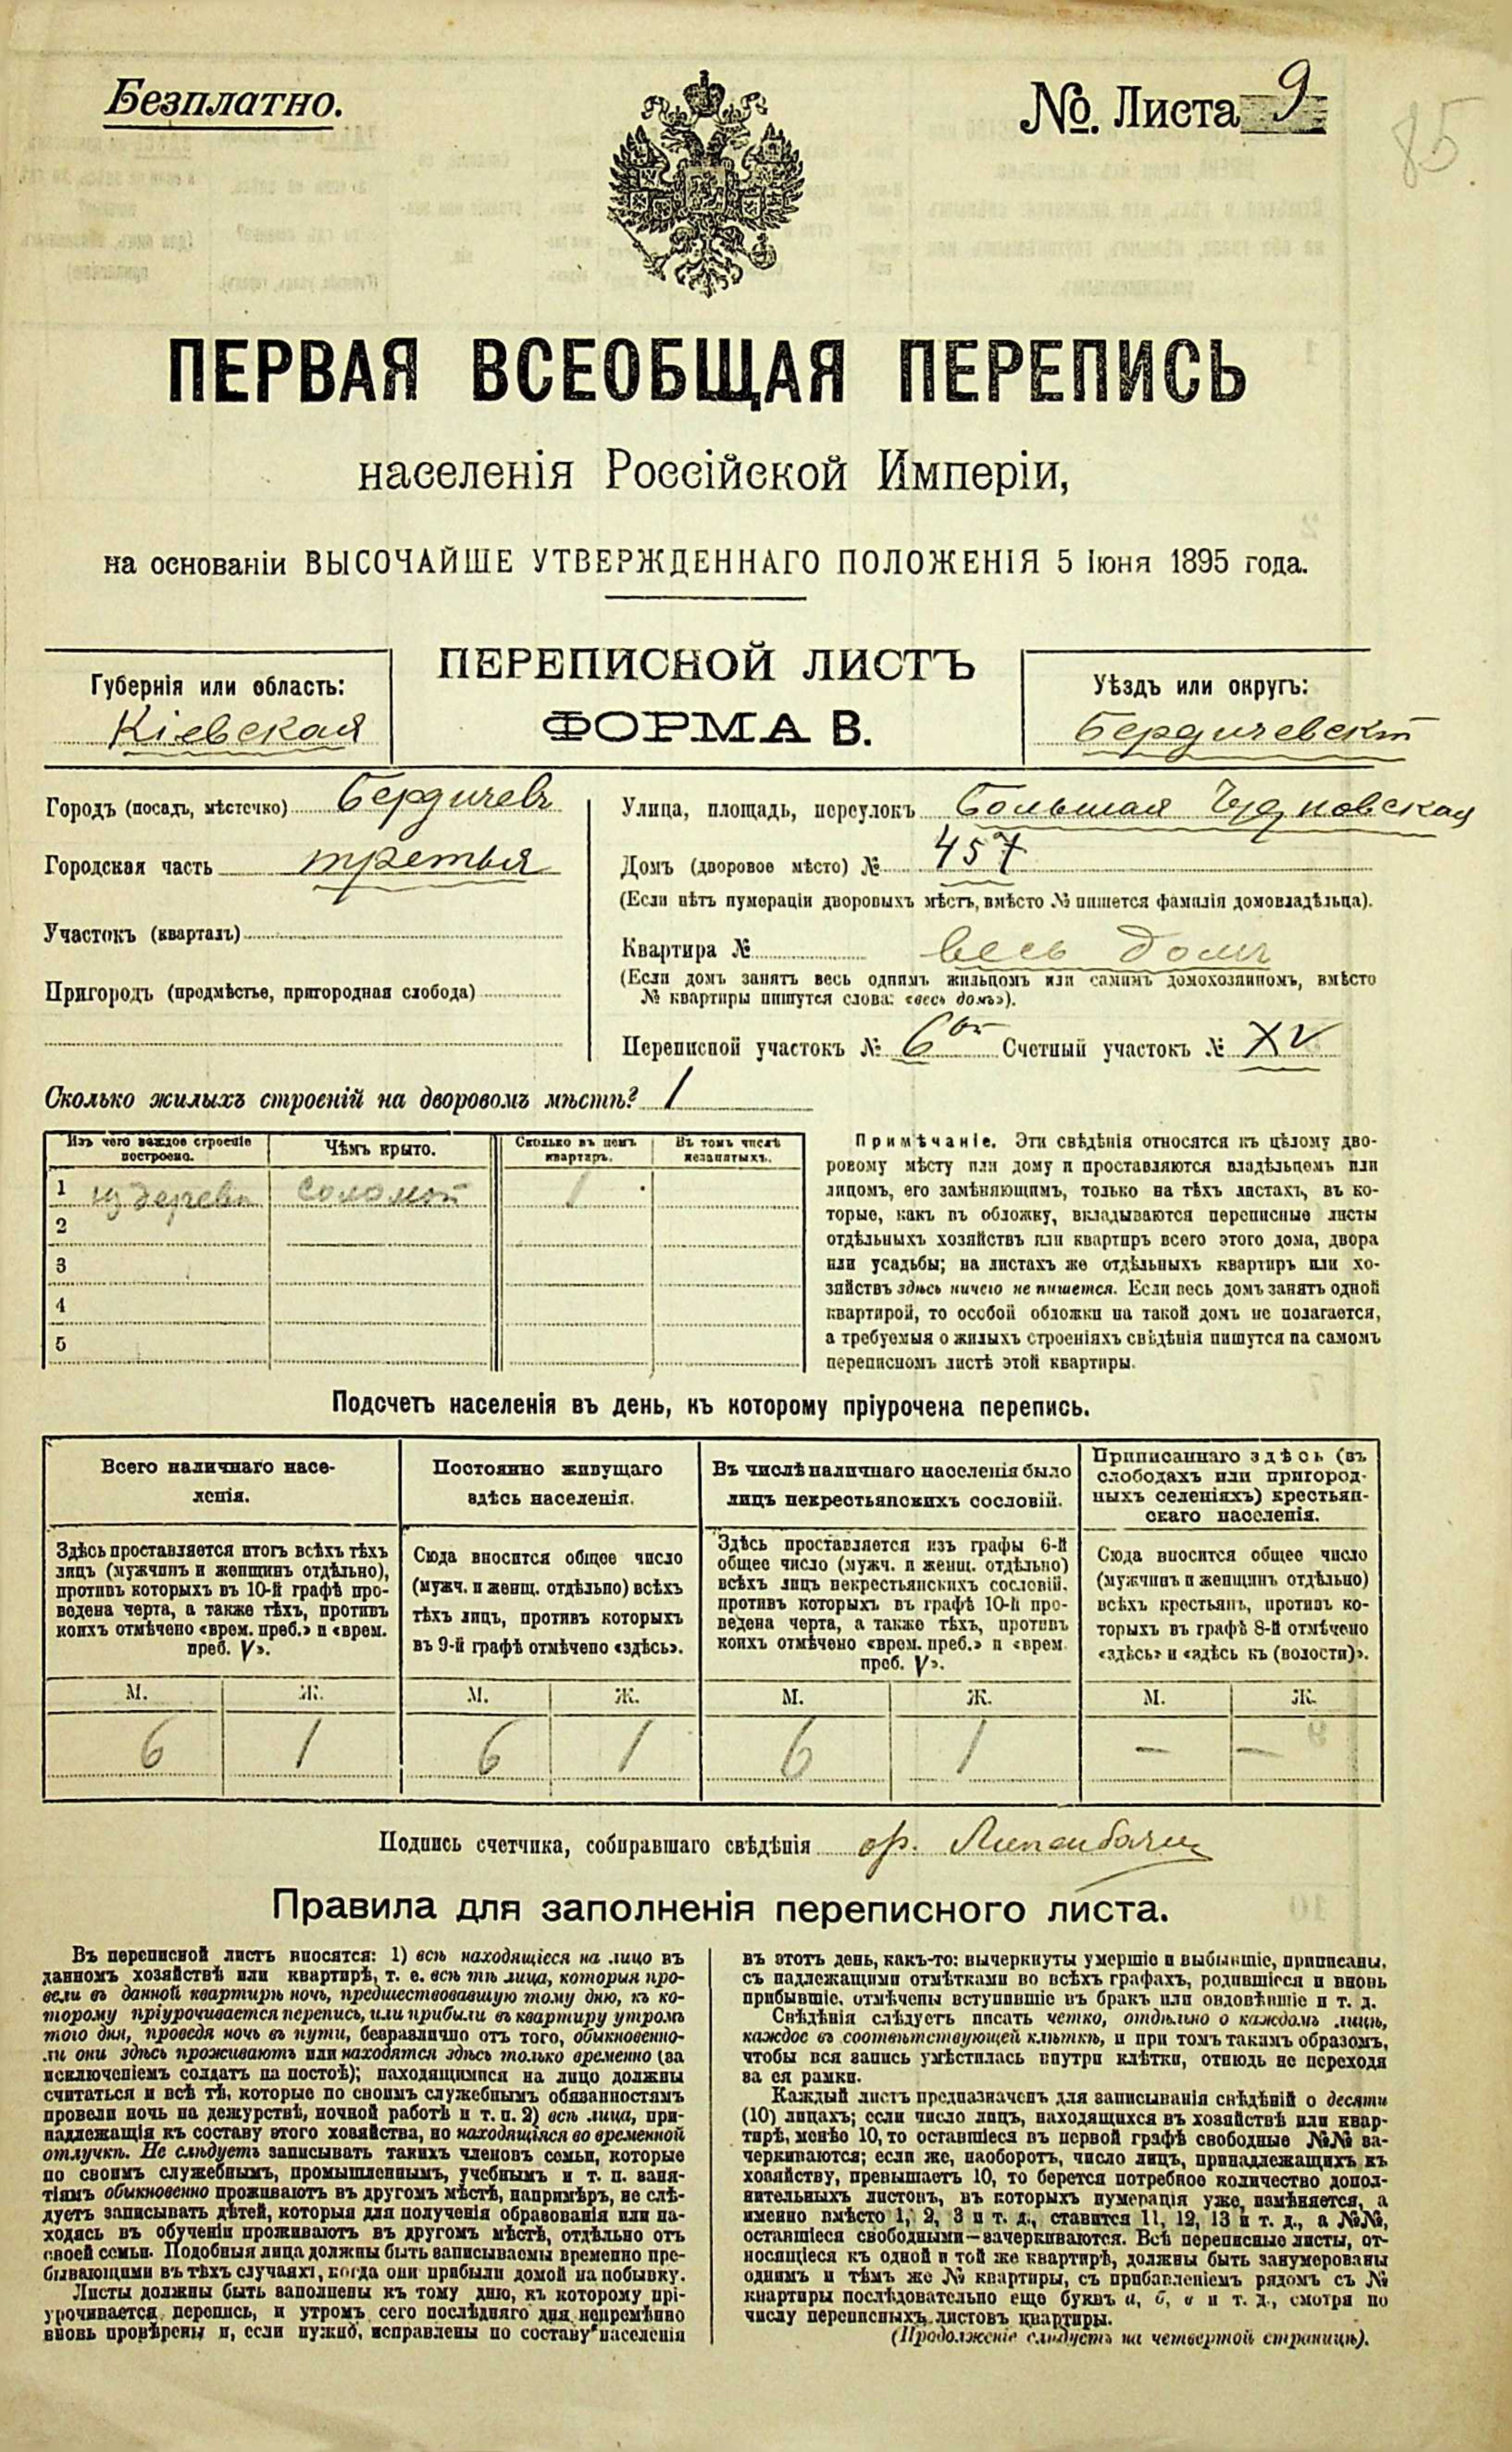 Безплатно.
№. Листа 9
85
ПЕРВАЯ ВСЕОБЩАЯ ПЕРЕПИСЬ
населенія Россійской Имперіи,
на основаніи ВЫСОЧАЙШЕ УТВЕРЖДЕННАГО ПОЛОЖЕНІЯ 5 Іюня 1895 года.
ПЕРЕПИСНОЙ ЛИСТЪ
ФОРМА В.
Губернія или область:
Кіевская
Уѣздъ или округъ:
Бердичевскій
Городъ (посадъ, мѣстечко) Бердичевъ
Городская часть третья
Участокъ (кварталъ)
Пригородъ (предмѣстье, пригородная слобода)
Улица, площадь, переулокъ Большая Чудновская
Домъ (дворовое мѣсто) № 457
(Если нѣтъ нумераціи дворовыхъ мѣстъ, вмѣсто № пишется фамилія домовладѣльца).
Квартира № весь домъ
(Если домъ занятъ весь однимъ жильцомъ или самимъ домохозяиномъ, вмѣсто
№ квартиры пишутся слова: «весь домъ»).
Переписной участокъ № 6 Счетный участокъ № XV
Сколько жилыхъ строеній на дворовомъ мѣстѣ? 1
Изъ чего каждое строеніе построено.
Чѣмъ крыто.
Сколько въ немъ квартиръ.
Въ томъ числѣ незанятыхъ.
1 из дерева соломой 1
2
3
4
5
Примѣчаніе. Эти свѣдѣнія относятся къ цѣлому дво-
ровому мѣсту или дому и проставляются владѣльцемъ или
лицомъ, его замѣняющимъ, только на тѣхъ листахъ, въ ко-
торые, какъ въ обложку, вкладываются переписные листы
отдѣльныхъ хозяйствъ или квартиръ всего этого дома, двора
или усадьбы; на листахъ же отдѣльныхъ квартиръ или хо-
зяйствъ здѣсь ничего не пишется. Если весь домъ занятъ одной
квартирой, то особой обложки на такой домъ не полагается,
а требуемыя о жилыхъ строеніяхъ свѣдѣнія пишутся на самомъ
переписномъ листѣ этой квартиры.
Подсчетъ населенія въ день, къ которому пріурочена перепись.
Всего наличнаго насе-
ленія.
Здѣсь проставляется итогъ всѣхъ тѣхъ
лицъ (мужчинъ и женщинъ отдѣльно),
противъ которыхъ въ 10-й графѣ про-
ведена черта, а также тѣхъ, противъ
коихъ отмѣчено «врем. преб.» и «врем.
преб. V».
Постоянно живущаго
здѣсь населенія.
Сюда вносится общее число
(мужч. и женщ. отдѣльно) всѣхъ
тѣхъ лицъ, противъ которыхъ
въ 9-й графѣ отмѣчено «здѣсь».
Въ числѣ наличнаго населенія было
лицъ некрестьянскихъ сословій.
Здѣсь проставляется изъ графы 6-й
общее число (мужч. и женщ. отдѣльно)
всѣхъ лицъ некрестьянскихъ сословій,
противъ которыхъ въ графѣ 10-й про-
ведена черта, а также тѣхъ, противъ
коихъ отмѣчено «врем. преб.» и «врем.
преб. V».
Приписаннаго здѣсь (въ
слободахъ или пригород-
ныхъ селеніяхъ) крестьян-
скаго населенія.
Сюда вносится общее число
(мужчинъ и женщинъ отдѣльно)
всѣхъ крестьянъ, противъ ко-
торыхъ въ графѣ 8-й отмѣчено
«здѣсь» и «здѣсь къ (волости)».
М. Ж. М. Ж. М. Ж. М. Ж.
6 1 6 1 6 1 — —
Подпись счетчика, собиравшаго свѣдѣнія
Правила для заполненія переписного листа.
Въ переписной листъ вносятся: 1) всѣ находящіеся на лицо въ
данномъ хозяйствѣ или квартирѣ, т. е. всѣ тѣ лица, которыя про-
вели въ данной квартирѣ ночь, предшествовавшую тому дню, къ ко-
торому пріурочивается перепись, или прибыли въ квартиру утромъ
того дня, проведя ночь въ пути, безразлично отъ того, обыкновенно-
ли они здѣсь проживаютъ или находятся здѣсь только временно (за
исключеніемъ солдатъ на постоѣ); находящимися на лицо должны
считаться и всѣ тѣ, которые по своимъ служебнымъ обязанностямъ
провели ночь на дежурствѣ, ночной работѣ и т. п. 2) всѣ лица, при-
надлежащія къ составу этого хозяйства, но находящіяся во временной
отлучкѣ. Не слѣдуетъ записывать такихъ членовъ семьи, которые
по своимъ служебнымъ, промышленнымъ, учебнымъ и т. п. заня-
тіямъ обыкновенно проживаютъ въ другомъ мѣстѣ, напримѣръ, не слѣ-
дуетъ записывать дѣтей, которыя для полученія образованія или на-
ходясь въ обученіи проживаютъ въ другомъ мѣстѣ, отдѣльно отъ
своей семьи. Подобныя лица должны быть записываемы временно пре-
бывающими въ тѣхъ случаяхъ, когда они прибыли домой на побывку.
Листы должны быть заполнены къ тому дню, къ которому прі-
урочивается перепись, и утромъ сего послѣдняго дня непремѣнно
вновь провѣрены и, если нужно, исправлены по составу населенія
въ этотъ день, какъ-то: вычеркнуты умершіе и выбывшіе, приписаны,
съ надлежащими отмѣтками во всѣхъ графахъ, родившіеся и вновь
прибывшіе, отмѣчены вступившіе въ бракъ или овдовѣвшіе и т. д.
Свѣдѣнія слѣдуетъ писать четко, отдѣльно о каждомъ лицѣ,
каждое въ соотвѣтствующей клѣткѣ, и при томъ такимъ образомъ,
чтобы вся запись умѣстилась внутри клѣтки, отнюдь не переходя
за ея рамки.
Каждый листъ предназначенъ для записыванія свѣдѣній о десяти
(10) лицахъ; если число лицъ, находящихся въ хозяйствѣ или квар-
тирѣ, менѣе 10, то оставшіеся въ первой графѣ свободные №№ за-
черкиваются; если же, наоборотъ, число лицъ, принадлежащихъ къ
хозяйству, превышаетъ 10, то берется потребное количество допол-
нительныхъ листовъ, въ которыхъ нумерація уже измѣняется, а
именно вмѣсто 1, 2, 3 и т. д., ставится 11, 12, 13 и т. д., а №№,
оставшіеся свободными—зачеркиваются. Всѣ переписные листы, от-
носящіеся къ одной и той же квартирѣ, должны быть занумерованы
однимъ и тѣмъ же № квартиры, съ прибавленіемъ рядомъ съ №
квартиры послѣдовательно еще буквъ а, б, в и т. д., смотря по
числу переписныхъ листовъ квартиры.
(Продолженіе слѣдуетъ на четвертой страницѣ).